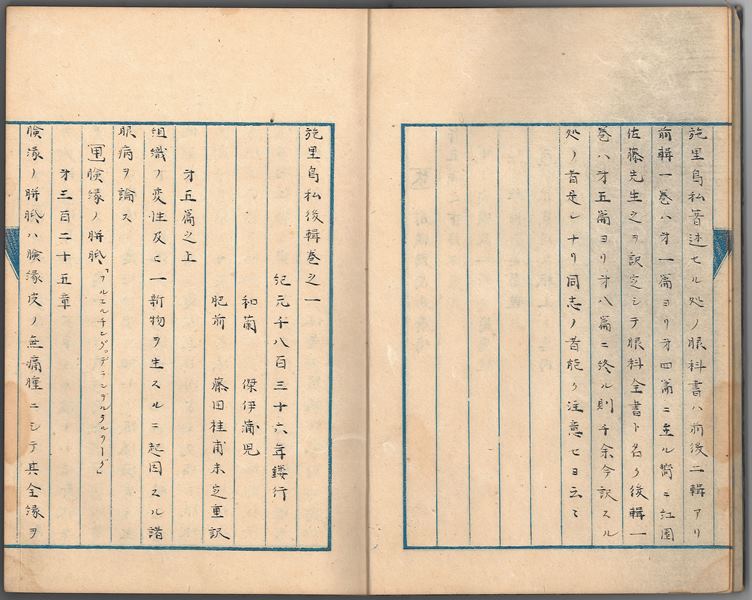 施里烏私著述セル処ノ眼科書ハ前後二輯アリ
前輯一巻ハ才一篇ヨリ才四篇ニ至ル嚮ニ江園
佐藤先生之ヲ訳定シテ眼科全書ト名ク後輯一
巻ハ才五篇ヨリ才八篇ニ終ル則チ余今訳スル
処ノ者是レナリ同志ノ者能ク注意セヨ云々
施里烏私後輯巻之一
紀元千八百三十六年鏤行
和蘭 傑伊蒲児
肥前 藤田桂甫未定重訳
才五篇之上
組織ノ変性及ヒ一新物ヲ生スルニ起因スル諸
眼病ヲ論ス
甲瞼縁ノ胼胝
才三百二十五章
瞼縁ノ胼胝ハ瞼縁皮ノ無痛腫ニシテ其全縁ヲ